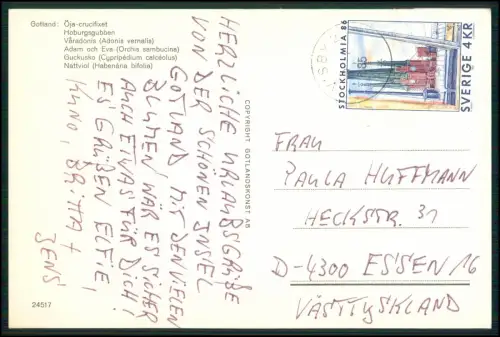 Gotland: Öja-crucifixet
Hoburgsgubben
Våradonis (Adonis vernalis)
Adam och Eva (Orchis sambucina)
Guckusko (Cypripédium calcéolus)
Nattviol (Habenária bifolia)
HERZLICHE URLAUBSGRÜßE
VON DER SCHÖNEN INSEL
GOTLAND. MIT DEN VIELEN
BLUMEN WÄR ES SICHER
AUCH ETWAS FÜR DICH!
ES GRÜßEN ELFIE,
KUNO, BRITTA +
JENS
24517
COPYRIGHT GOTLANDSKONST AB
STOCKHOLMIA 86
SVERIGE 4 KR
FRAU
PAULA HUFFMANN
HECKSTR. 31
D-4300 ESSEN 16
VÄSTTYSKLAND